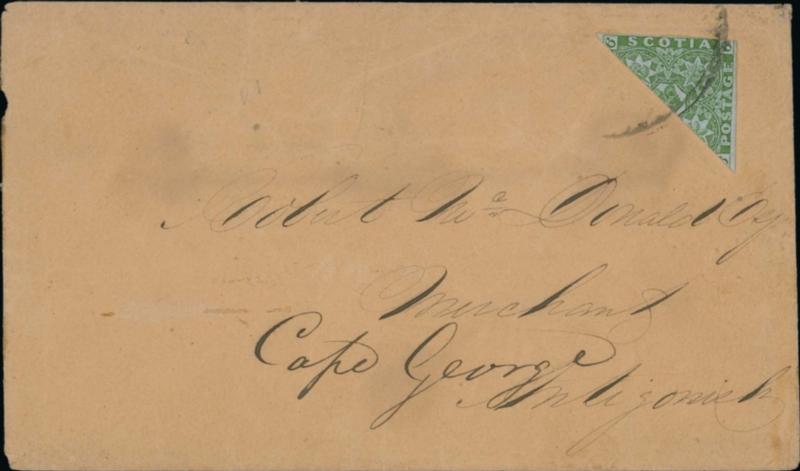 SCOTIA
POSTAGE
Robert Mc Donald Esq
Merchant
Cape George
Antigonish